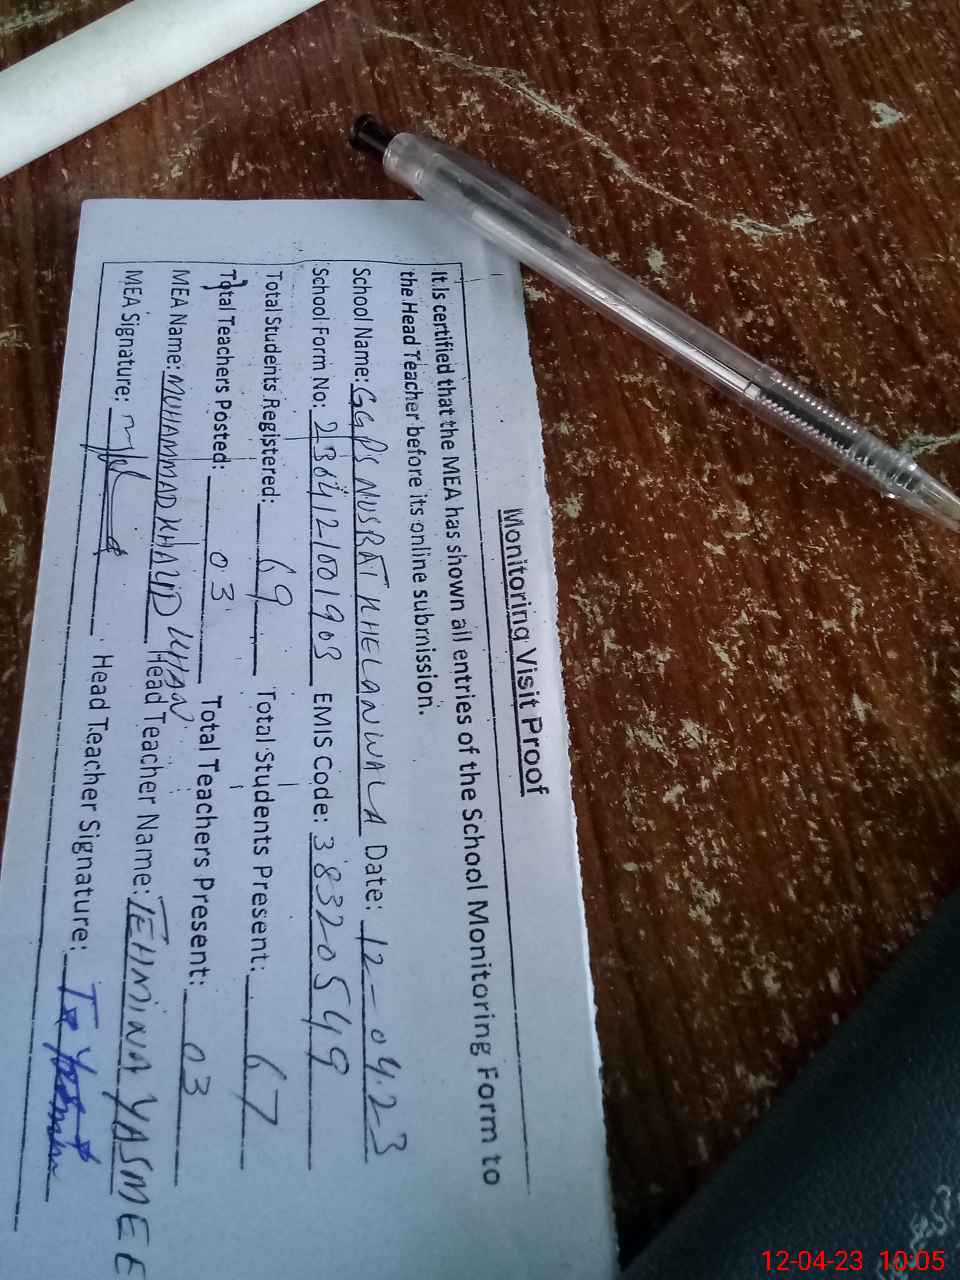 Monitoring Visit Proof
It is certified that the MEA has shown all entries of the School Monitoring Form to
the Head Teacher before its online submission.
School Name: GGPS NUSRAT KHELANWALA Date: 12-04.23
School Form No: EMIS Code: 38320549
Total Students Registered: 69 Total Students Present: 67
Total Teachers Posted: 03 Total Teachers Present: 03
MEA Name: MUHAMMAD KHALID Head Teacher Name: TEHMINA YASMEE
MEA Signature: Head Teacher Signature:
12-04-23 10:05